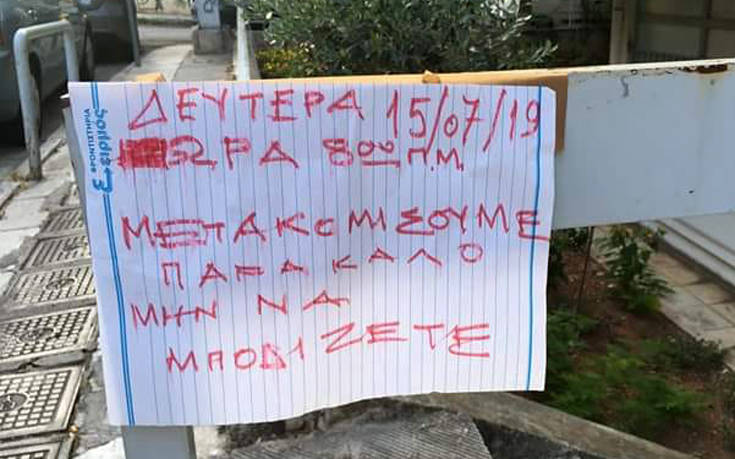 ΔΕΥΤΕΡΑ 15/07/19
ΩΡΑ 8οο Π.Μ.
ΜΕΤΑΚΟΜΙΣΟΥΜΕ
ΠΑΡΑΚΑΛΟ
ΜΗΝ ΝΑ
ΜΠΟΔΙΖΕΤΕ
ΦΡΟΝΤΙΣΤΗΡΙΑ